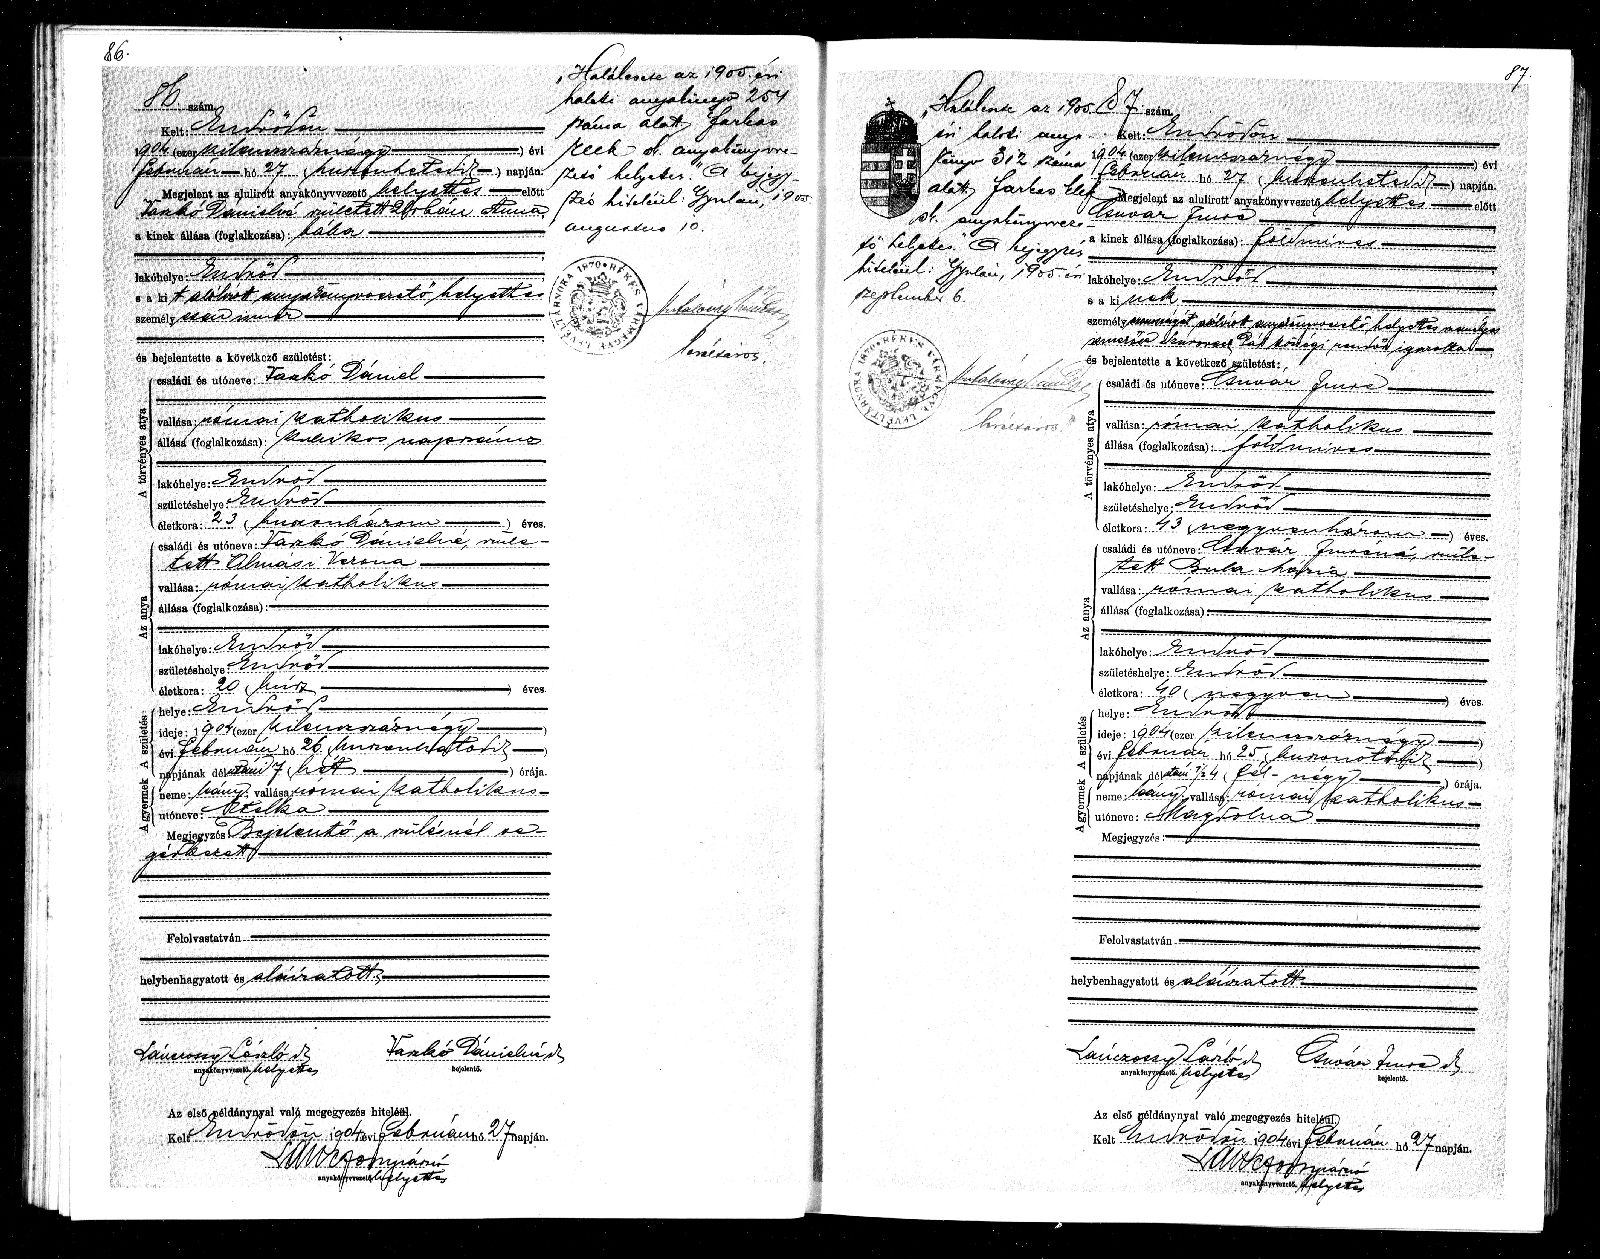 86.
86. szám.
Kelt: Endrődön
1904 (ezer kilenczszáznégy) évi
Február hó 27 (huszonhetedik) napján.
Megjelent az alulirott anyakönyvvezető helyettes előtt
Tankó Dánielné született Urbán Anna
a kinek állása (foglalkozása): bába
lakóhelye: Endrőd
s a kit alólirott anyakönyvvezető helyettes
személyesen ismer
és bejelentette a következő születést:
A törvényes atya
családi és utóneve: Tankó Dániel
vallása: római katholikus
állása (foglalkozása): kubikos napszámos
lakóhelye: Endrőd
születéshelye: Endrőd
életkora: 23 (huszonhárom) éves.
Az anya
családi és utóneve: Tankó Dánielné, szüle-
tett Almási Verona
vallása: római katholikus
állása (foglalkozása):
lakóhelye: Endrőd
születéshelye: Endrőd
életkora: 20 (húsz) éves.
A születés
helye: Endrőd
ideje: 1904 (ezer kilenczszáznégy)
évi Február hó 26 (huszonhatodik)
napjának dél után 7 (hét) órája.
A gyermek
neme: leány; vallása: római katholikus
utóneve: Etelka
Megjegyzés: Bejelentő a szülésnél se-
gédkezett
Felolvastatván
helybenhagyatott és aláiratott
Lánczossy László sk Tankó Dánielné sk
anyakönyvvezető. helyettes bejelentő.
Az első példánynyal való megegyezés hiteléül.
Kelt Endrődön 1904 évi Február hó 27 napján.
anyakönyvvezető. helyettes
„Halálesete az 1905. évi
halotti anyakönyv 254
száma alatt. Farkas
Elek s. k. anyakönyvve-
zető helyettes." A bejegy-
zés hiteléül: Gyulán, 1905.
augusztus 10.
BÉKÉS VÁRMEGYE LEVÉLTÁRNOKA 1870
levéltáros.
87.
87. szám.
Kelt: Endrődön
1904 (ezer kilenczszáznégy) évi
Február hó 27 (huszonhetedik) napján.
Megjelent az alulirott anyakönyvvezető helyettes előtt
Csuvár Imre
a kinek állása (foglalkozása): földmives
lakóhelye: Endrőd
s a kinek
személyazonosságát alólirott anyakönyvvezető helyettes személyesen
ismerőse Pál községi rendőr igazolta
és bejelentette a következő születést:
A törvényes atya
családi és utóneve: Csuvar Imre
vallása: római katholikus
állása (foglalkozása): földmives
lakóhelye: Endrőd
születéshelye: Endrőd
életkora: 43 (negyvenhárom) éves.
Az anya
családi és utóneve: Csuvar Imréné, szüle-
tett Bula Mária
vallása: római katholikus
állása (foglalkozása):
lakóhelye: Endrőd
születéshelye: Endrőd
életkora: 40 (negyven) éves.
A születés
helye: Endrőd
ideje: 1904 (ezer kilenczszáznégy)
évi Február hó 25 (huszonötödik)
napjának dél után 1/2 4 (fél-négy) órája.
A gyermek
neme: leány; vallása: római katholikus
utóneve: Magdolna
Megjegyzés:
Felolvastatván
helybenhagyatott és aláiratott
Lánczossy László sk Csuvár Imre sk
anyakönyvvezető. helyettes bejelentő.
Az első példánynyal való megegyezés hiteléül.
Kelt Endrődön 1904 évi Február hó 27 napján.
anyakönyvvezető. helyettes
„Halálesete az 1905.
évi halotti anya-
könyv 312 száma
alatt. Farkas Elek
sk. anyakönyvveze-
tő helyettes." A bejegyzés
hiteléül: Gyulán, 1905 évi
szeptember 6.
BÉKÉS VÁRMEGYE LEVÉLTÁRNOKA 1870
levéltáros